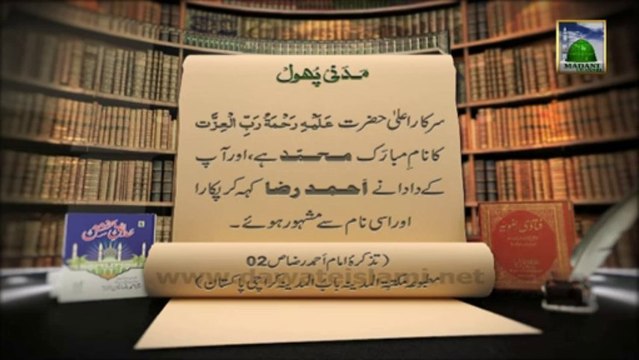 مدنی پھول
MADANI
سرکارِ اعلیٰ حضرت عَلَیْہِ رَحْمَۃُ رَبِّ الْعِزَّت
کا نامِ مبارک محمد ہے، اور آپ
کے دادا نے احمد رضا کہہ کر پکارا
اور اسی نام سے مشہور ہوئے۔
(تذکرۂ امام احمد رضا ص 02
مطبوعہ مکتبۃ المدینہ باب المدینہ کراچی پاکستان)
www.dawateislami.net
فتاوی رضویہ